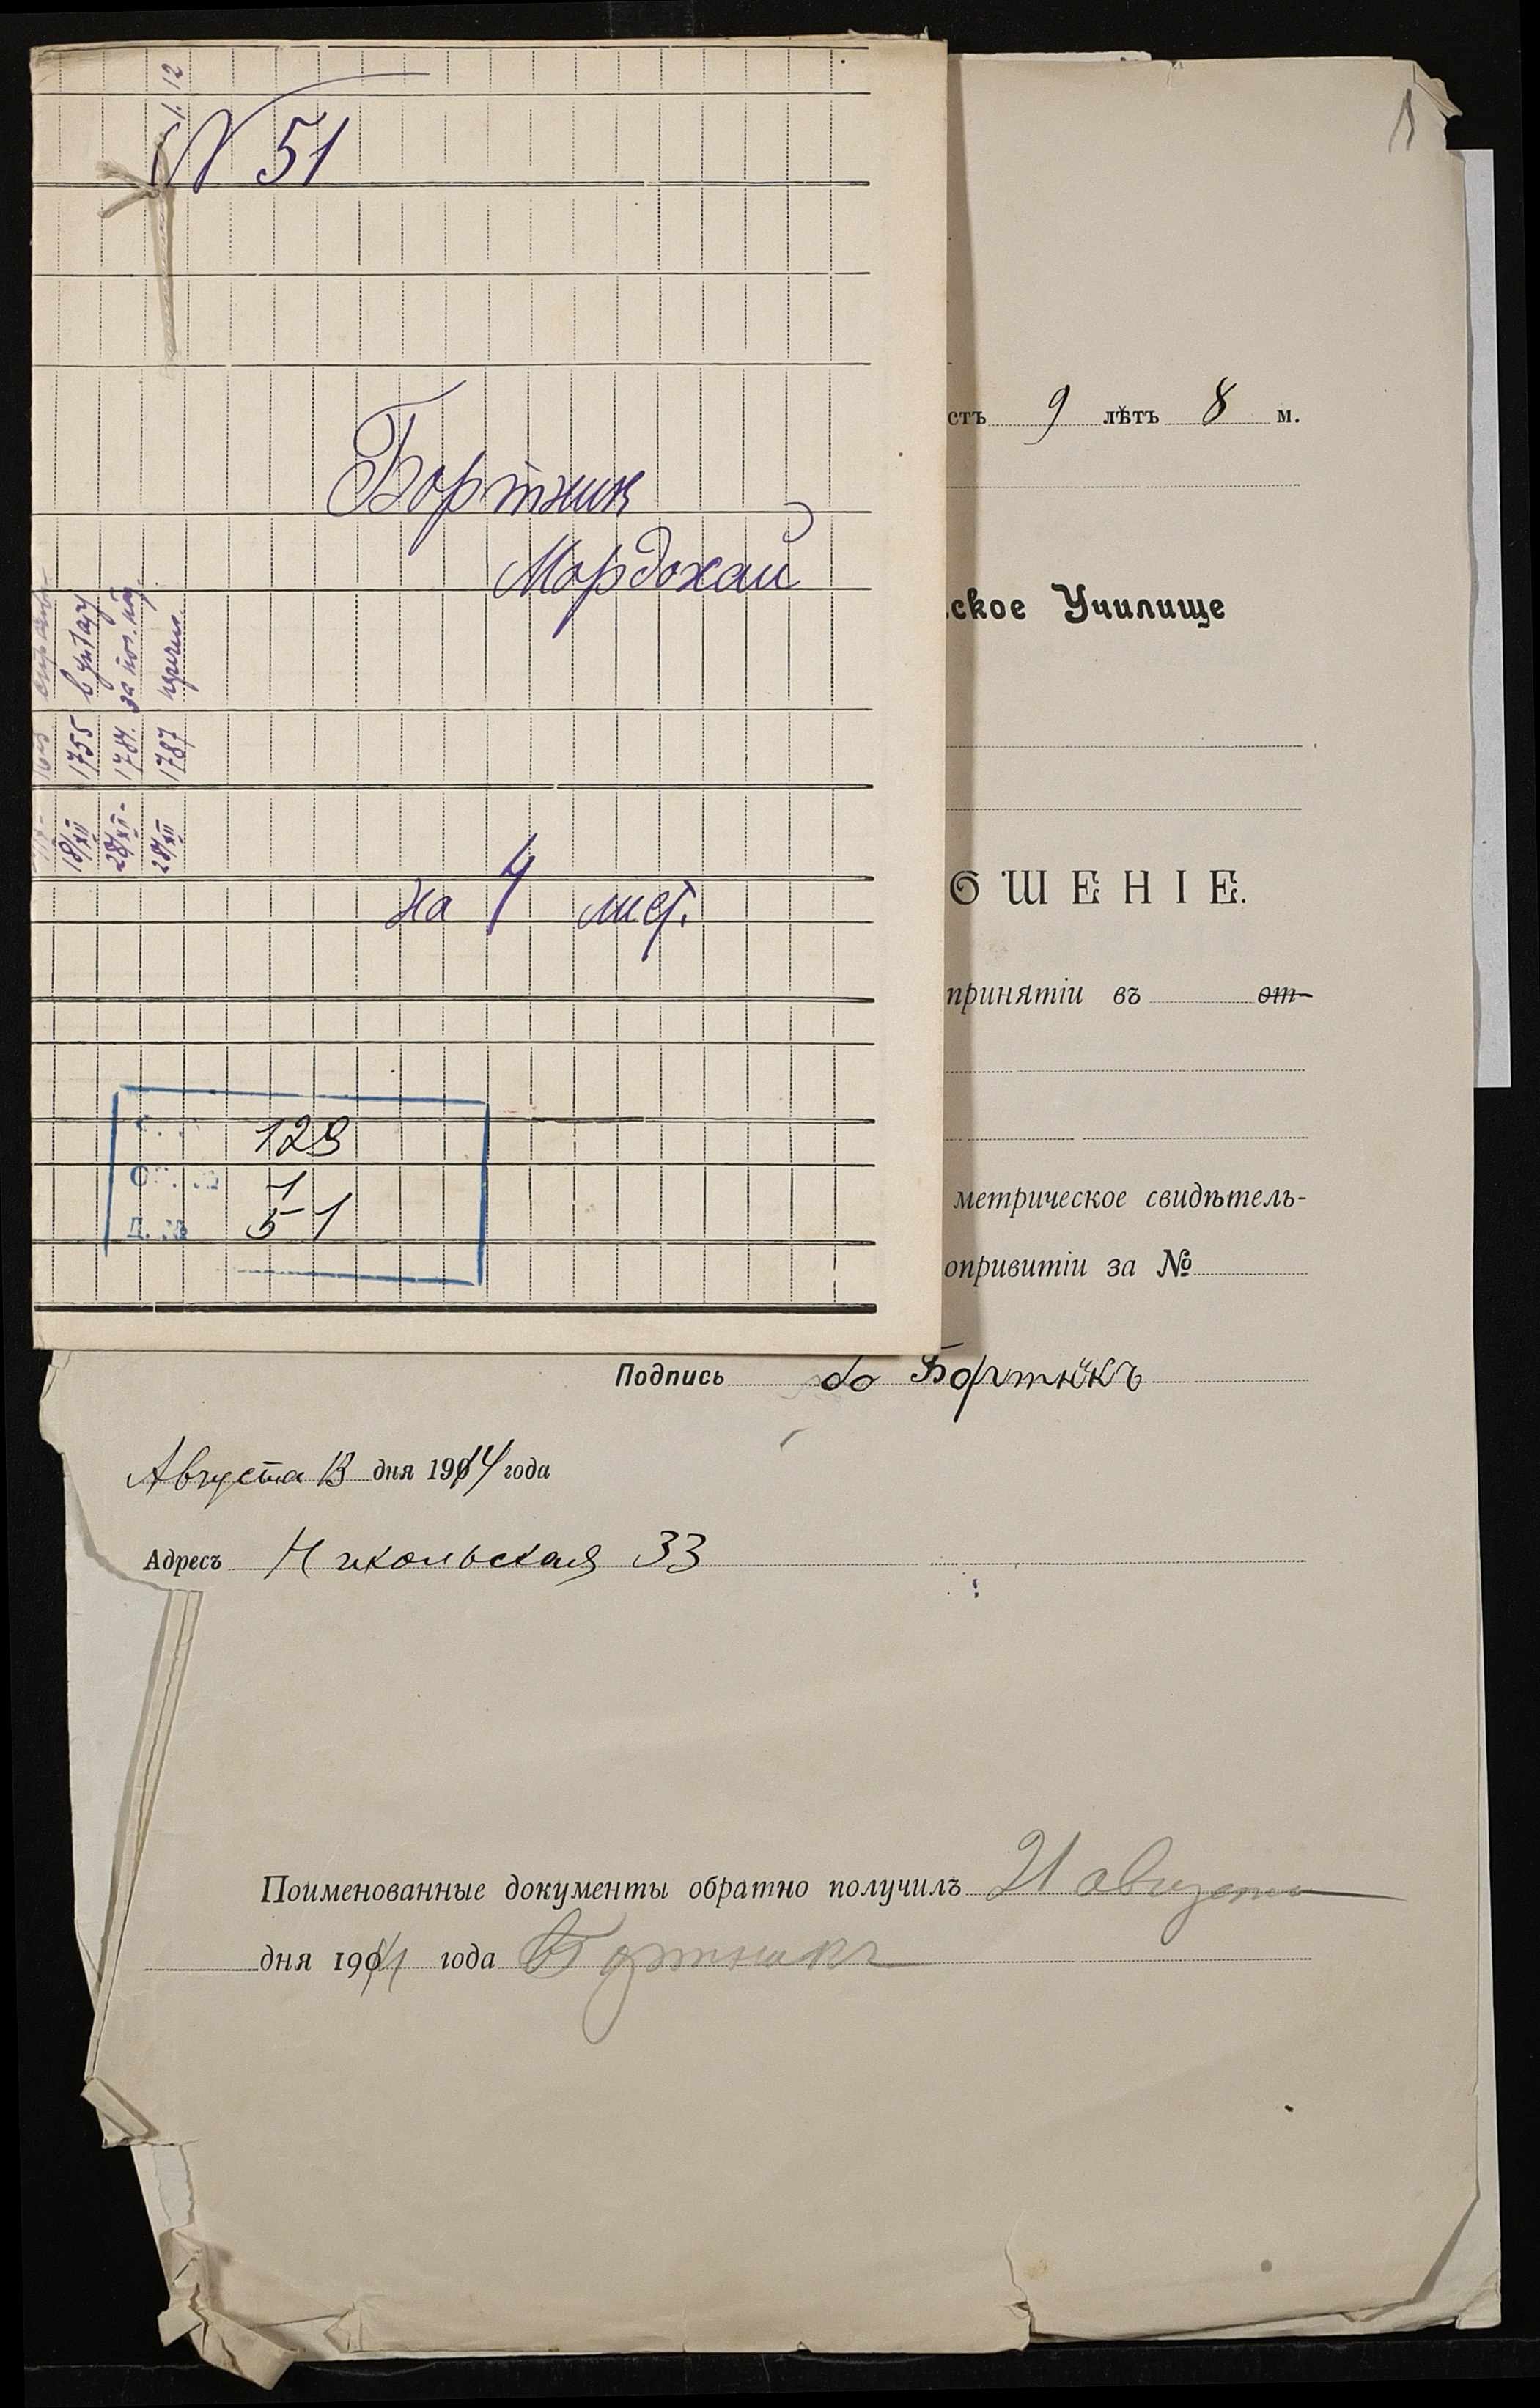 1
N 51
Бортник
Мордохай
в уплату
1755
1784.
1787
18/XII
28/XII
28/XII
на 4 лист.
129
1
51
стъ 9 лѣтъ 8 м.
ское Училище
ОШЕНІЕ.
принятіи въ от-
метрическое свидѣтель-
опривитіи за №
Подпись Бортникъ
Августа 13 дня 1914 года
Адресъ Никольская 33
Поименованные документы обратно получилъ 21 августа
дня 1914 года Бортникъ